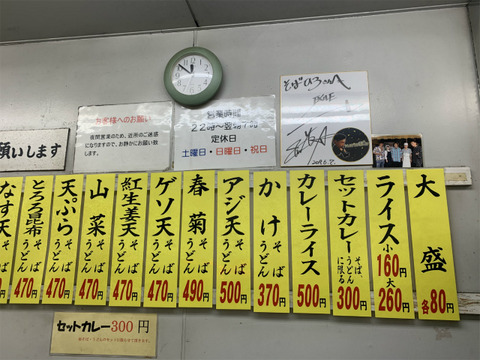 お客様へのお願い
夜間営業のため、近所のご迷惑
になりますので、お静かにお願い致します。
営業時間
22時～翌朝7時
定休日
土曜日・日曜日・祝日
そばひろさんへ
願いします
大盛 各80円
ライス 小160円 大260円
セットカレー そば、うどんに限る 300円
カレーライス 500円
かけ そば うどん 370円
アジ天 そば うどん 500円
春菊 そば うどん 490円
ゲソ天 そば うどん 470円
紅生姜天 そば うどん 470円
山菜 そば うどん 470円
天ぷら そば うどん 470円
とろろ昆布 そば うどん 470円
なす天 そば うどん
セットカレー300円